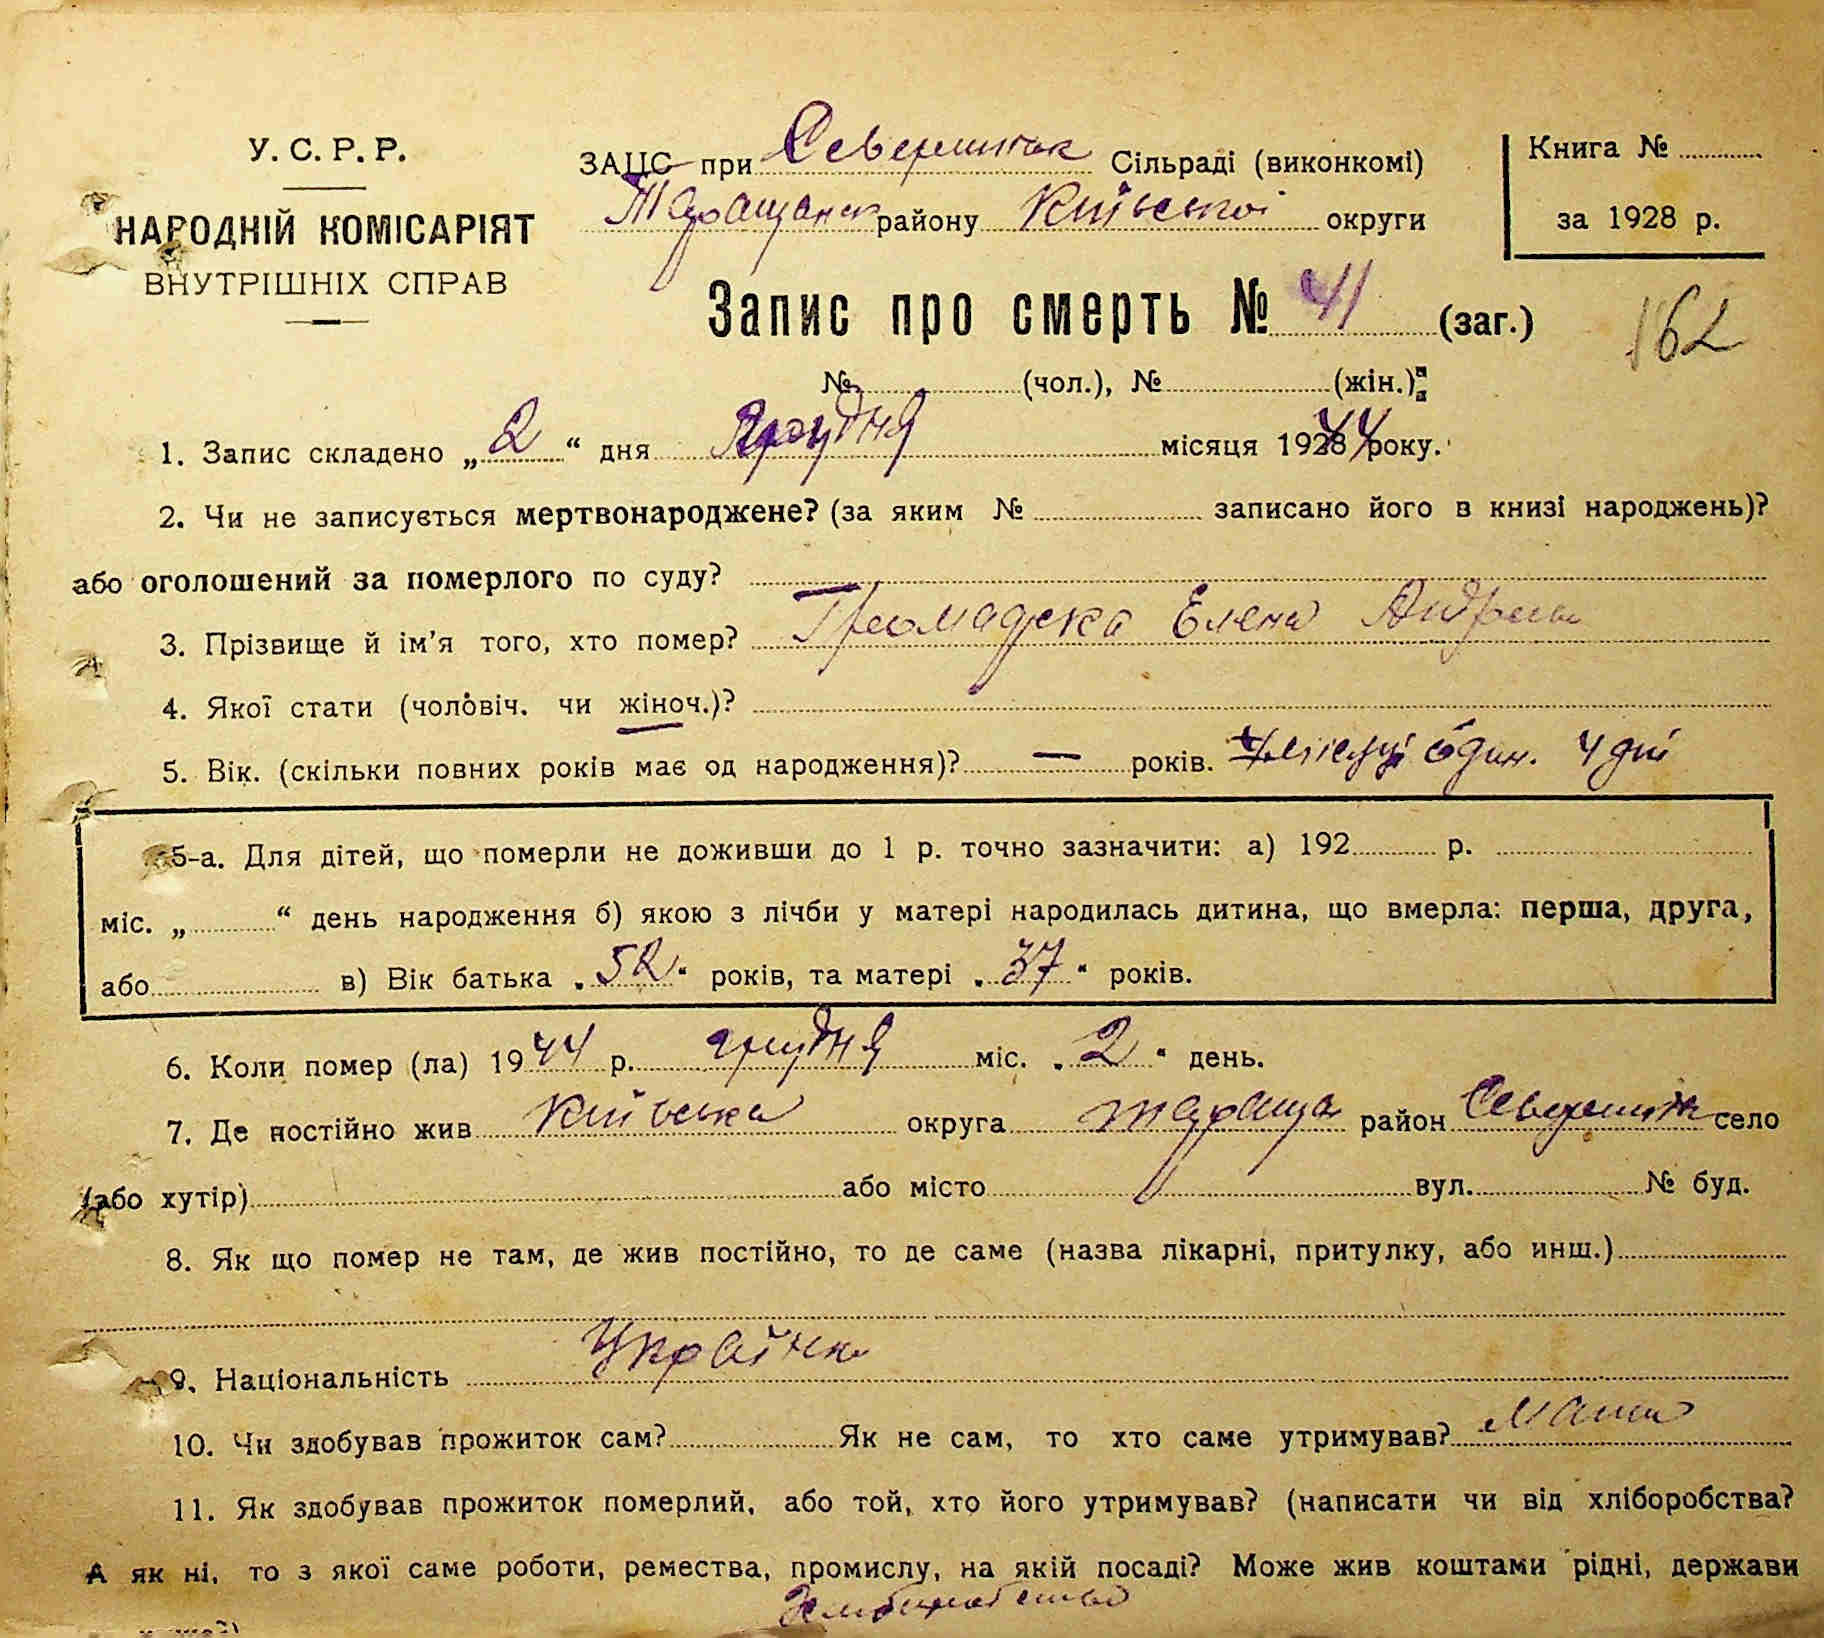 У. С. Р. Р.
НАРОДНІЙ КОМІСАРІЯТ
ВНУТРІШНІХ СПРАВ
ЗАЦС при Северинськ Сільраді (виконкомі)
Таращанськ району Київської округи
Книга №
за 1928 р.
Запис про смерть № 41 (заг.)
162
№ (чол.), № (жін.)
1. Запис складено „2“ дня грудня місяця 1944 року.
2. Чи не записується мертвонароджене? (за яким № записано його в книзі народжень)?
або оголошений за померлого по суду?
3. Прізвище й ім’я того, хто помер? Громадска Елена Андріев
4. Якої стати (чоловіч. чи жіноч.)?
5. Вік. (скільки повних років має од народження)? — років. один. 4 дні
5-а. Для дітей, що померли не доживши до 1 р. точно зазначити: а) 192 р.
міс. „ “ день народження б) якою з лічби у матері народилась дитина, що вмерла: перша, друга,
або в) Вік батька „52“ років, та матері „37“ років.
6. Коли помер (ла) 1944 р. грудня міс. „2“ день.
7. Де постійно жив Київська округа Тараща район Северинк село
(або хутір) або місто вул. № буд.
8. Як що помер не там, де жив постійно, то де саме (назва лікарні, притулку, або инш.)
9. Національність Українка
10. Чи здобував прожиток сам? Як не сам, то хто саме утримував? Мати
11. Як здобував прожиток померлий, або той, хто його утримував? (написати чи від хліборобства?
А як ні, то з якої саме роботи, ремества, промислу, на якій посаді? Може жив коштами рідні, держави